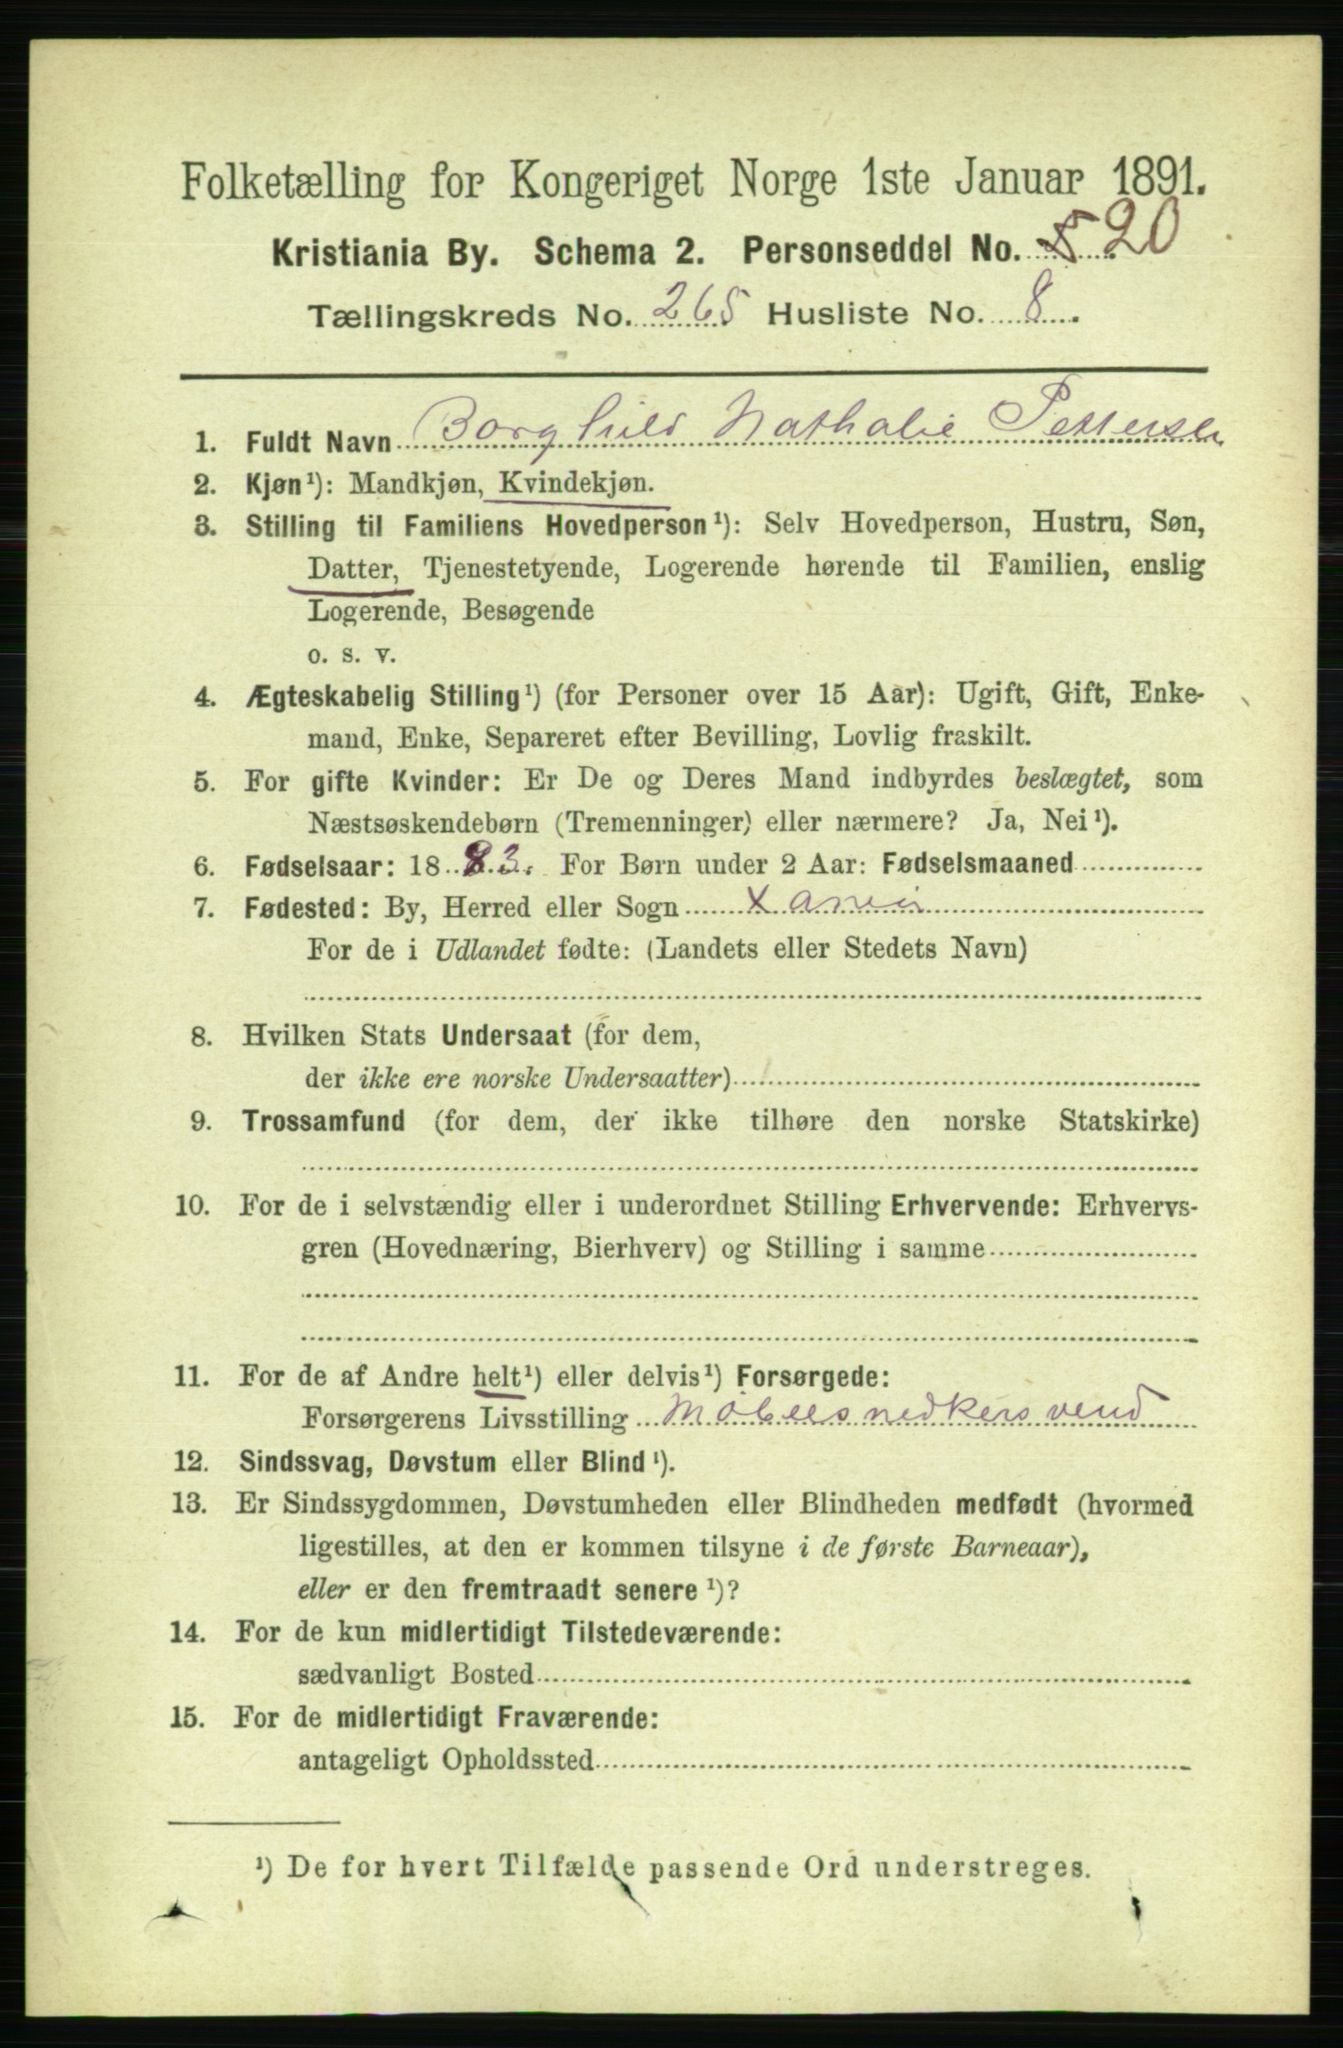 Folketælling for Kongeriget Norge 1ste Januar 1891.
Kristiania By. Schema 2. Personseddel No. 5 20
Tællingskreds No. 265 Husliste No. 8.
1. Fuldt Navn Borghild Nathalie Pettersen
2. Kjøn¹): Mandkjøn, Kvindekjøn.
3. Stilling til Familiens Hovedperson¹): Selv Hovedperson, Hustru, Søn,
Datter, Tjenestetyende, Logerende hørende til Familien, enslig
Logerende, Besøgende
o. s. v.
4. Ægteskabelig Stilling¹) (for Personer over 15 Aar): Ugift, Gift, Enke-
mand, Enke, Separeret efter Bevilling, Lovlig fraskilt.
5. For gifte Kvinder: Er De og Deres Mand indbyrdes beslægtet, som
Næstsøskendebørn (Tremenninger) eller nærmere? Ja, Nei¹).
6. Fødselsaar: 1883. For Børn under 2 Aar: Fødselsmaaned
7. Fødested: By, Herred eller Sogn X ania
For de i Udlandet fødte: (Landets eller Stedets Navn)
8. Hvilken Stats Undersaat (for dem,
der ikke ere norske Undersaatter)
9. Trossamfund (for dem, der ikke tilhøre den norske Statskirke)
10. For de i selvstændig eller i underordnet Stilling Erhvervende: Erhvervs-
gren (Hovednæring, Bierhverv) og Stilling i samme
11. For de af Andre helt¹) eller delvis¹) Forsørgede:
Forsørgerens Livsstilling Møbelsnedkersvend
12. Sindssvag, Døvstum eller Blind¹).
13. Er Sindssygdommen, Døvstumheden eller Blindheden medfødt (hvormed
ligestilles, at den er kommen tilsyne i de første Barneaar),
eller er den fremtraadt senere¹)?
14. For de kun midlertidigt Tilstedeværende:
sædvanligt Bosted
15. For de midlertidigt Fraværende:
antageligt Opholdssted
¹) De for hvert Tilfælde passende Ord understreges.